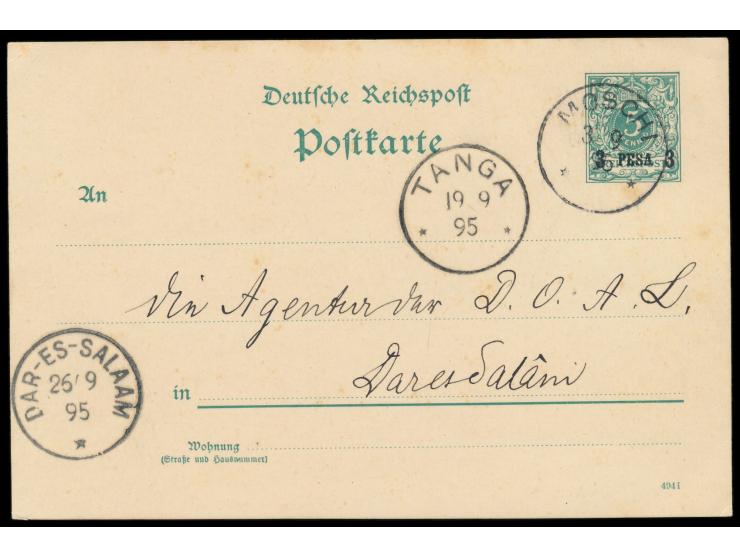 Deutsche Reichspost
Postkarte
An
MOSCHI
3 9
3 PESA 3
TANGA
19 9
95
die Agentur der D. O. A. L.
Dar es Salâm
in
DAR-ES-SALAAM
26/ 9
95
Wohnung
(Straße und Hausnummer)
4941